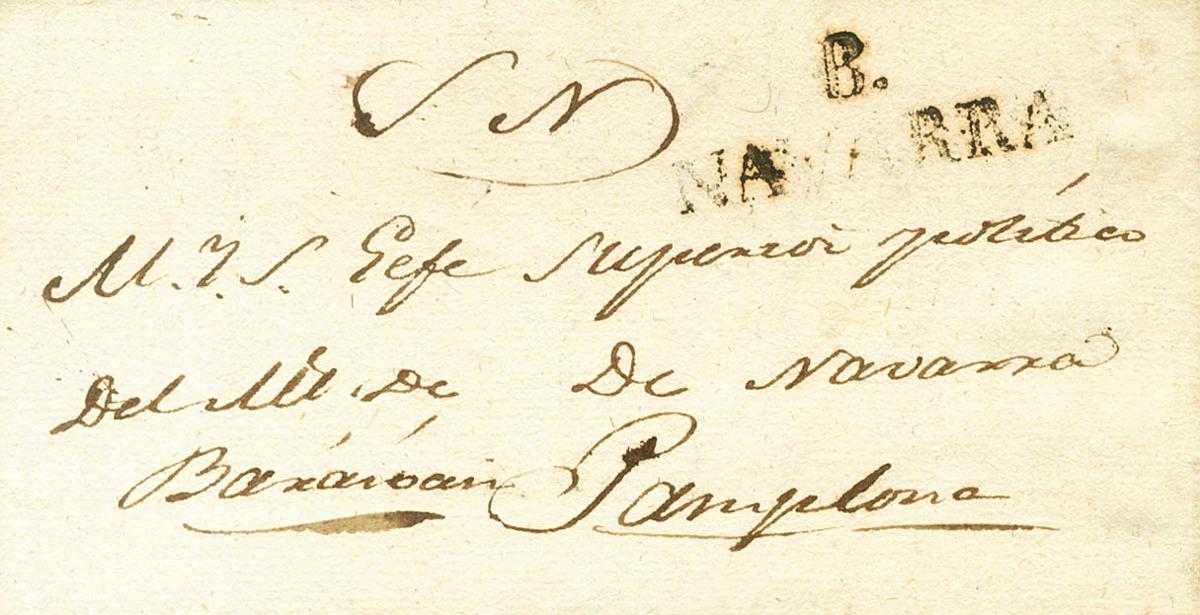 S N
B.
NAVARRA
M. Y. S. Gefe Superior político
Del Al.e De De Navarra
Pamplona